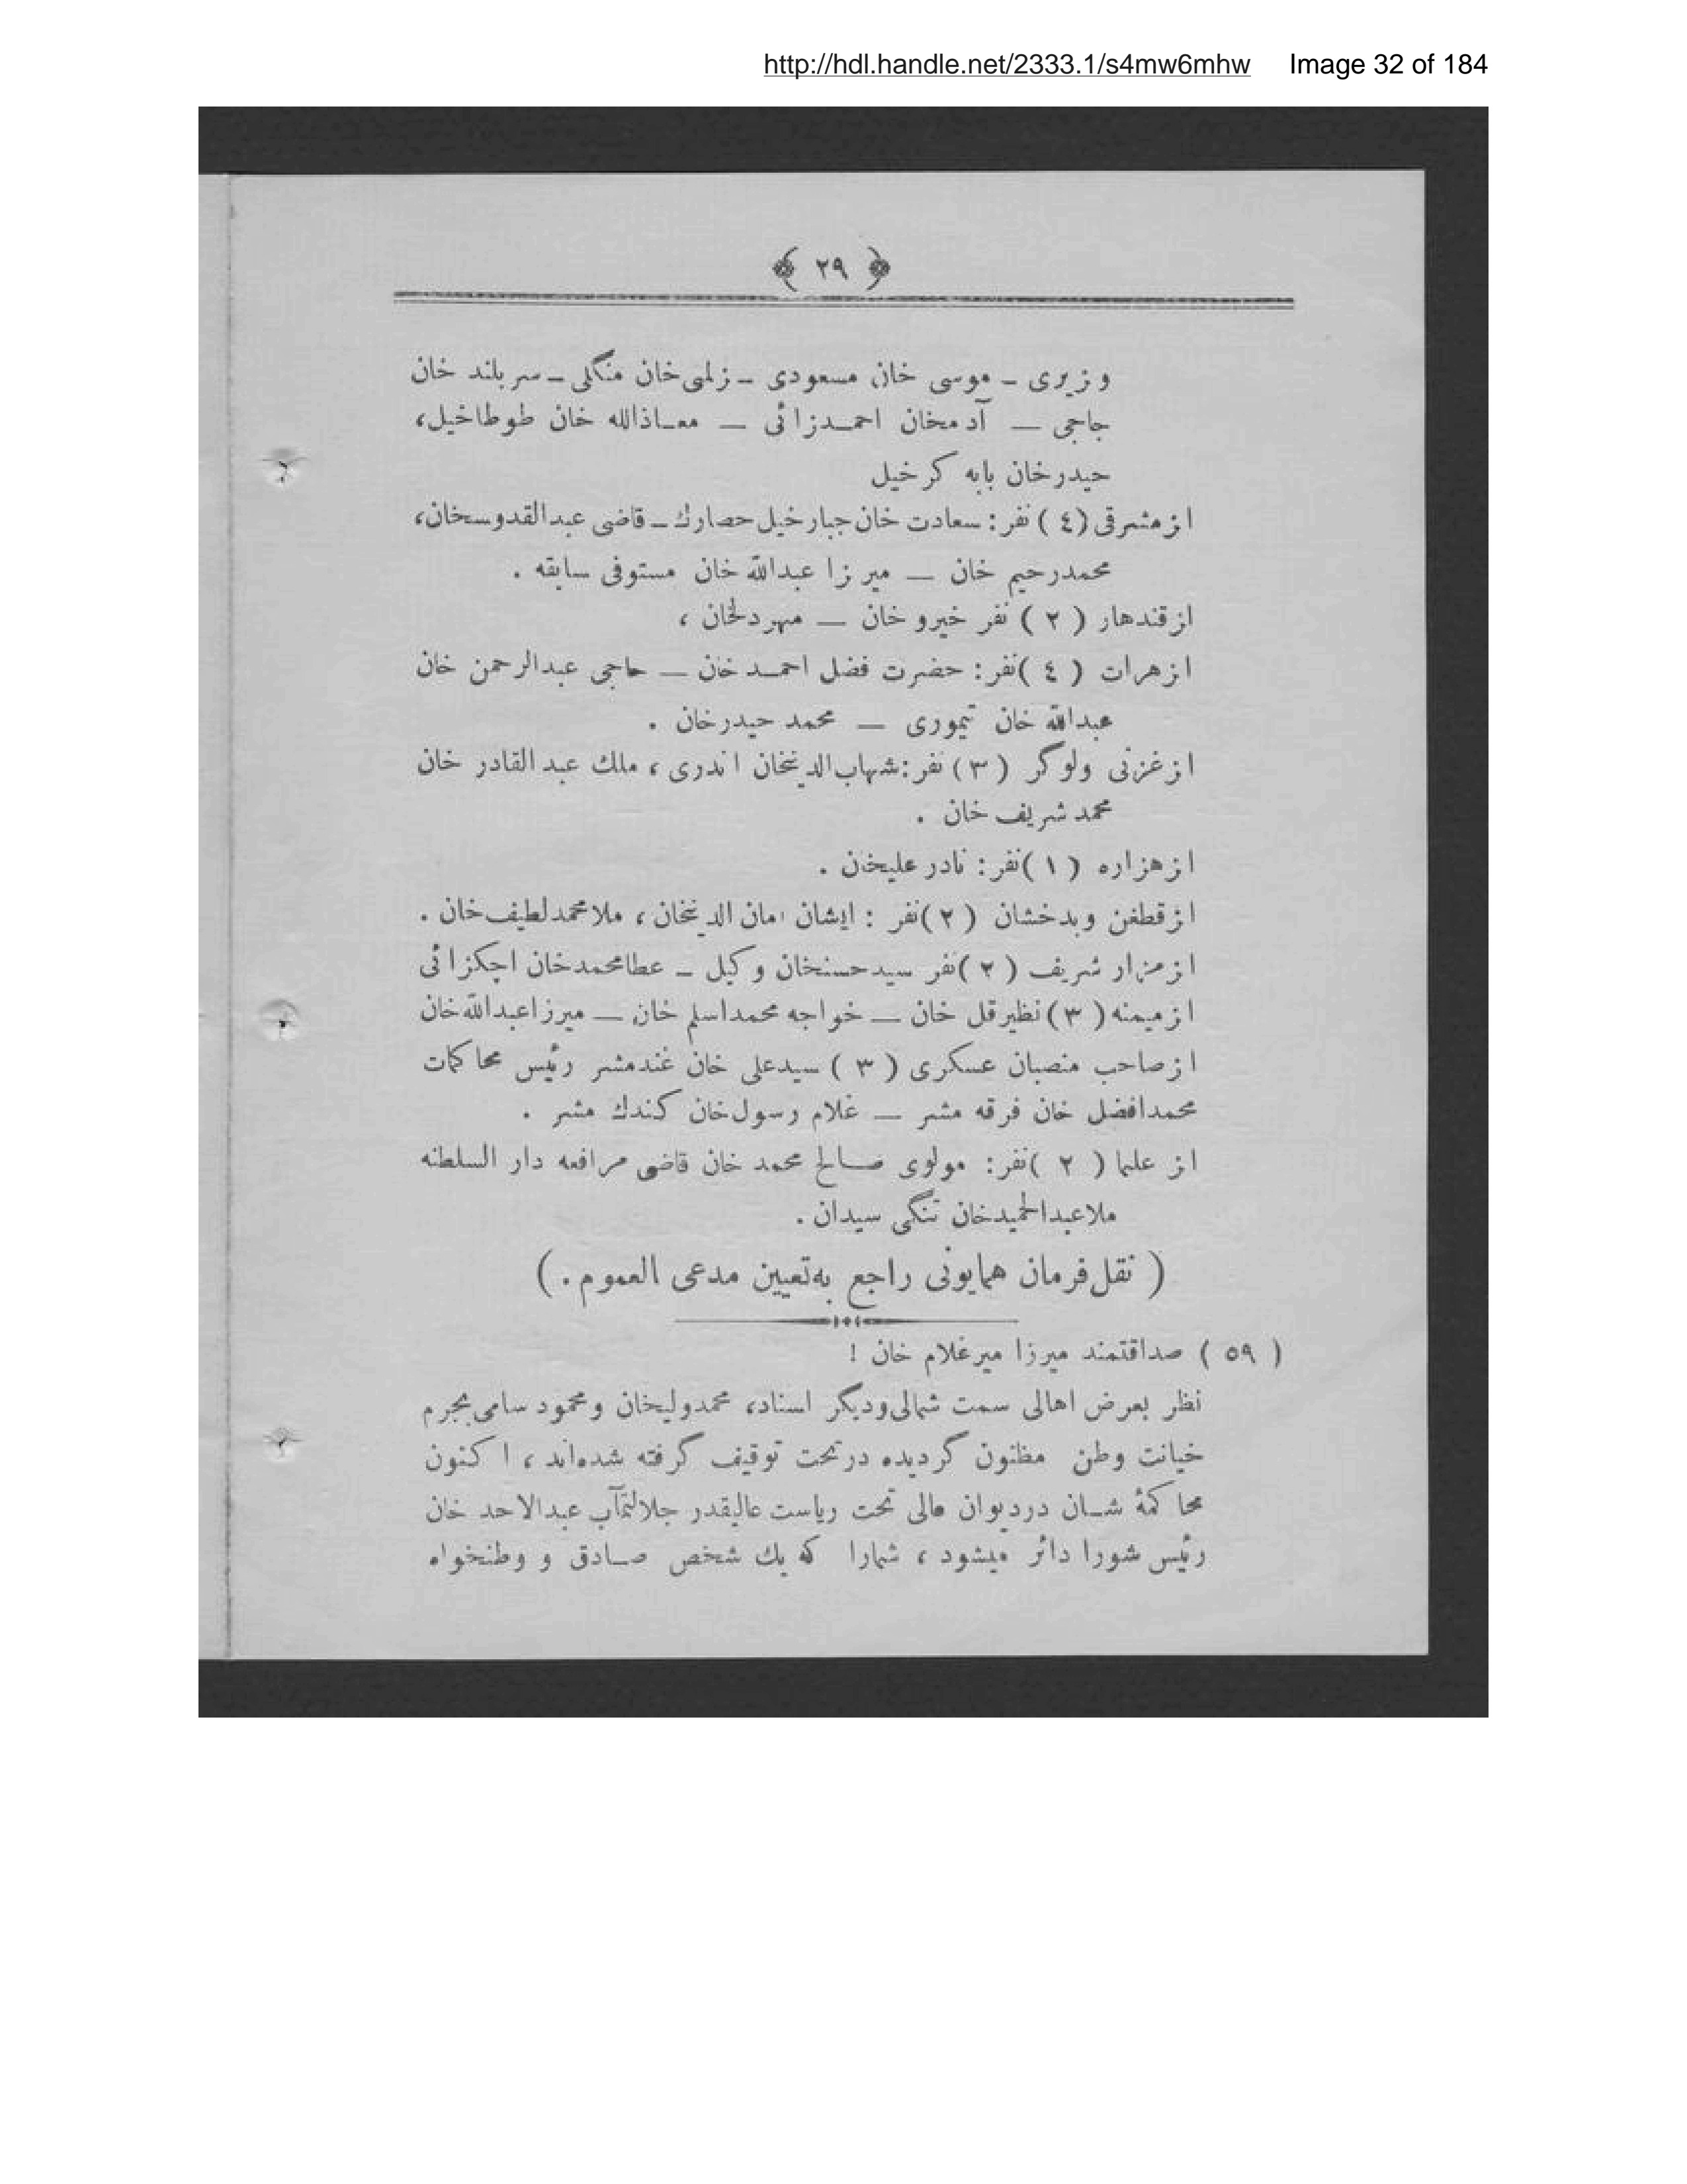 http://hdl.handle.net/2333.1/s4mw6mhw Image 32 of 184
﴿ ٢٩ ﴾
وزیری – موسی خان مسعودی – زلمی خان منگلی – سر بلند خان
جاجی — آدمخان احمدزائی — معاذالله خان طوطاخیل،
حیدرخان بابه کرخیل
از مشرقی (٤) نفر: سعادت خان جبارخیل حصارك – قاضی عبدالقدوسخان،
محمدرحیم خان — میرزا عبدالله خان مستوفی سابقه .
از قندهار (٢) نفر خیرو خان — مهردلخان ،
از هرات (٤) نفر: حضرت فضل احمد خان — حاجی عبدالرحمن خان
عبدالله خان تیموری — محمد حیدرخان .
از غزنی ولوگر (٣) نفر: شهاب الدینخان اندری ، ملك عبدالقادر خان
محمد شریف خان .
از هزاره (١) نفر: نادر علیخان .
از قطغن وبدخشان (٢) نفر : ایشان امان الدینخان ، ملا محمد لطیف خان .
از مزار شریف (٢) نفر سید حسنخان وکیل – عطامحمدخان اچکزائی
از میمنه (٣) نظیرقل خان — خواجه محمداسلم خان — میرزا عبدالله خان
از صاحب منصبان عسکری (٣) سیدعلی خان غندمشر رئیس محاکمات
محمدافضل خان فرقه مشر — غلام رسول خان کندك مشر .
از علما (٢) نفر: مولوی صالح محمد خان قاضی مرافعه دار السلطنه
ملا عبدالحمیدخان تنگی سیدان .
( نقل فرمان همایونی راجع به تعیین مدعی العموم . )
( ٥٩ ) صداقتمند میرزا میرغلام خان !
نظر بعرض اهالی سمت شمالی ودیگر اسناد، محمدولیخان ومحمود سامی بجرم
خیانت وطن مظنون گردیده در تحت توقیف گرفته شده‌اند ، اکنون
محاکمهٔ شان دردیوان عالی تحت ریاست عالیقدر جلالتمآب عبدالاحد خان
رئیس شورا دائر میشود ، شمارا که یك شخص صادق و وطنخواه